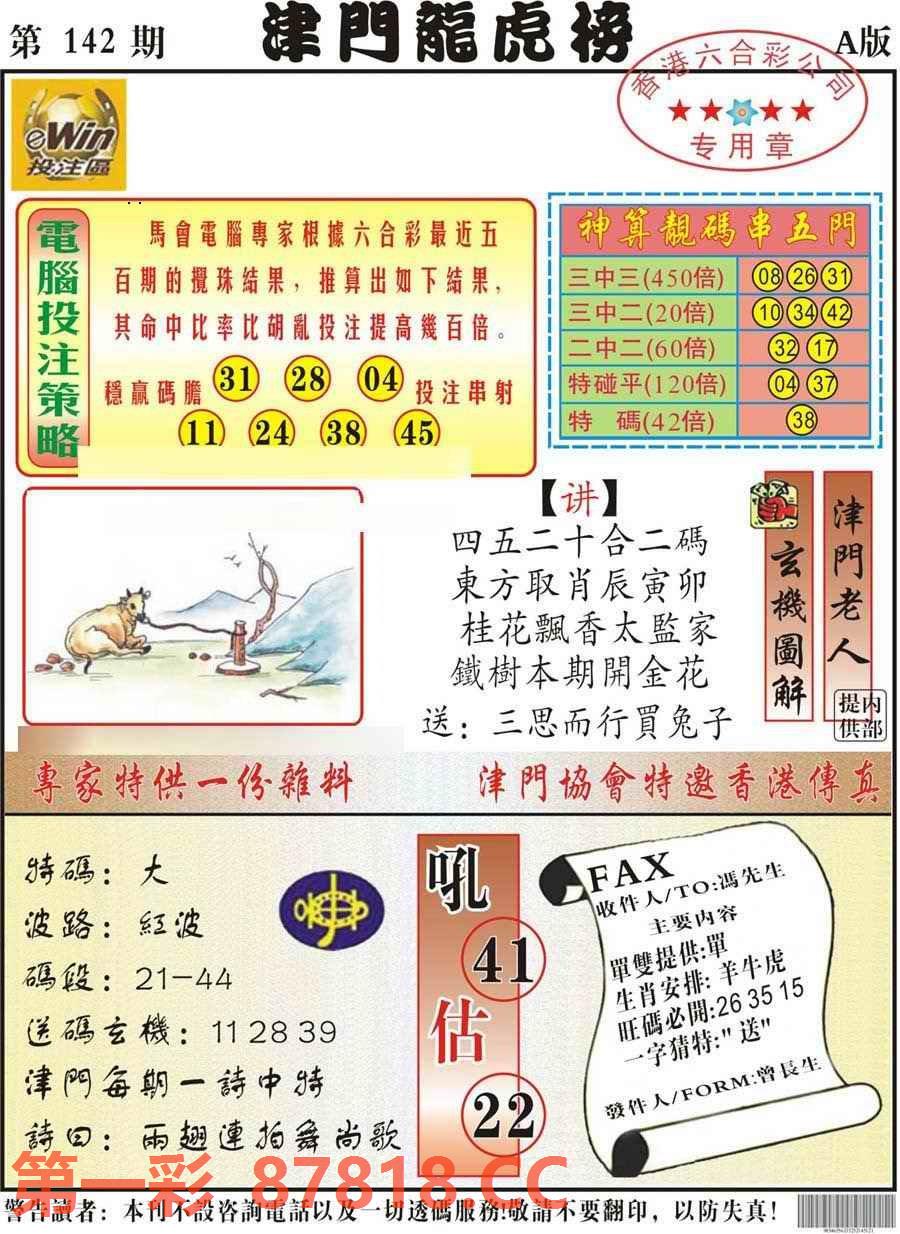 第 142 期
津門龍虎榜
A版
香港六合彩公司
专用章
eWin
投注區
電腦投注策略
馬會電腦專家根據六合彩最近五
百期的攪珠結果，推算出如下結果，
其命中比率比胡亂投注提高幾百倍。
穩贏碼膽 31 28 04 投注串射
11 24 38 45
神算靚碼串五門
三中三(450倍) 08 26 31
三中二(20倍) 10 34 42
二中二(60倍) 32 17
特碰平(120倍) 04 37
特 碼(42倍) 38
【讲】
四五二十合二碼
東方取肖辰寅卯
桂花飄香太監家
鐵樹本期開金花
送：三思而行買兔子
玄機圖解
津門老人
内部提供
專家特供一份雜料
津門協會特邀香港傳真
特碼：大
波路：紅波
碼段：21-44
送碼玄機：11 28 39
津門每期一詩中特
詩曰：兩翅連拍舞尚歌
吼
41
估
22
FAX
收件人/TO:馮先生
主要内容
單雙提供:單
生肖安排:羊牛虎
旺碼必開:26 35 15
一字猜特:"送"
發件人/FORM:曾長生
第一彩 87818.CC
警告讀者：本刊不設咨詢電話以及一切透碼服務!敬請不要翻印，以防失真!